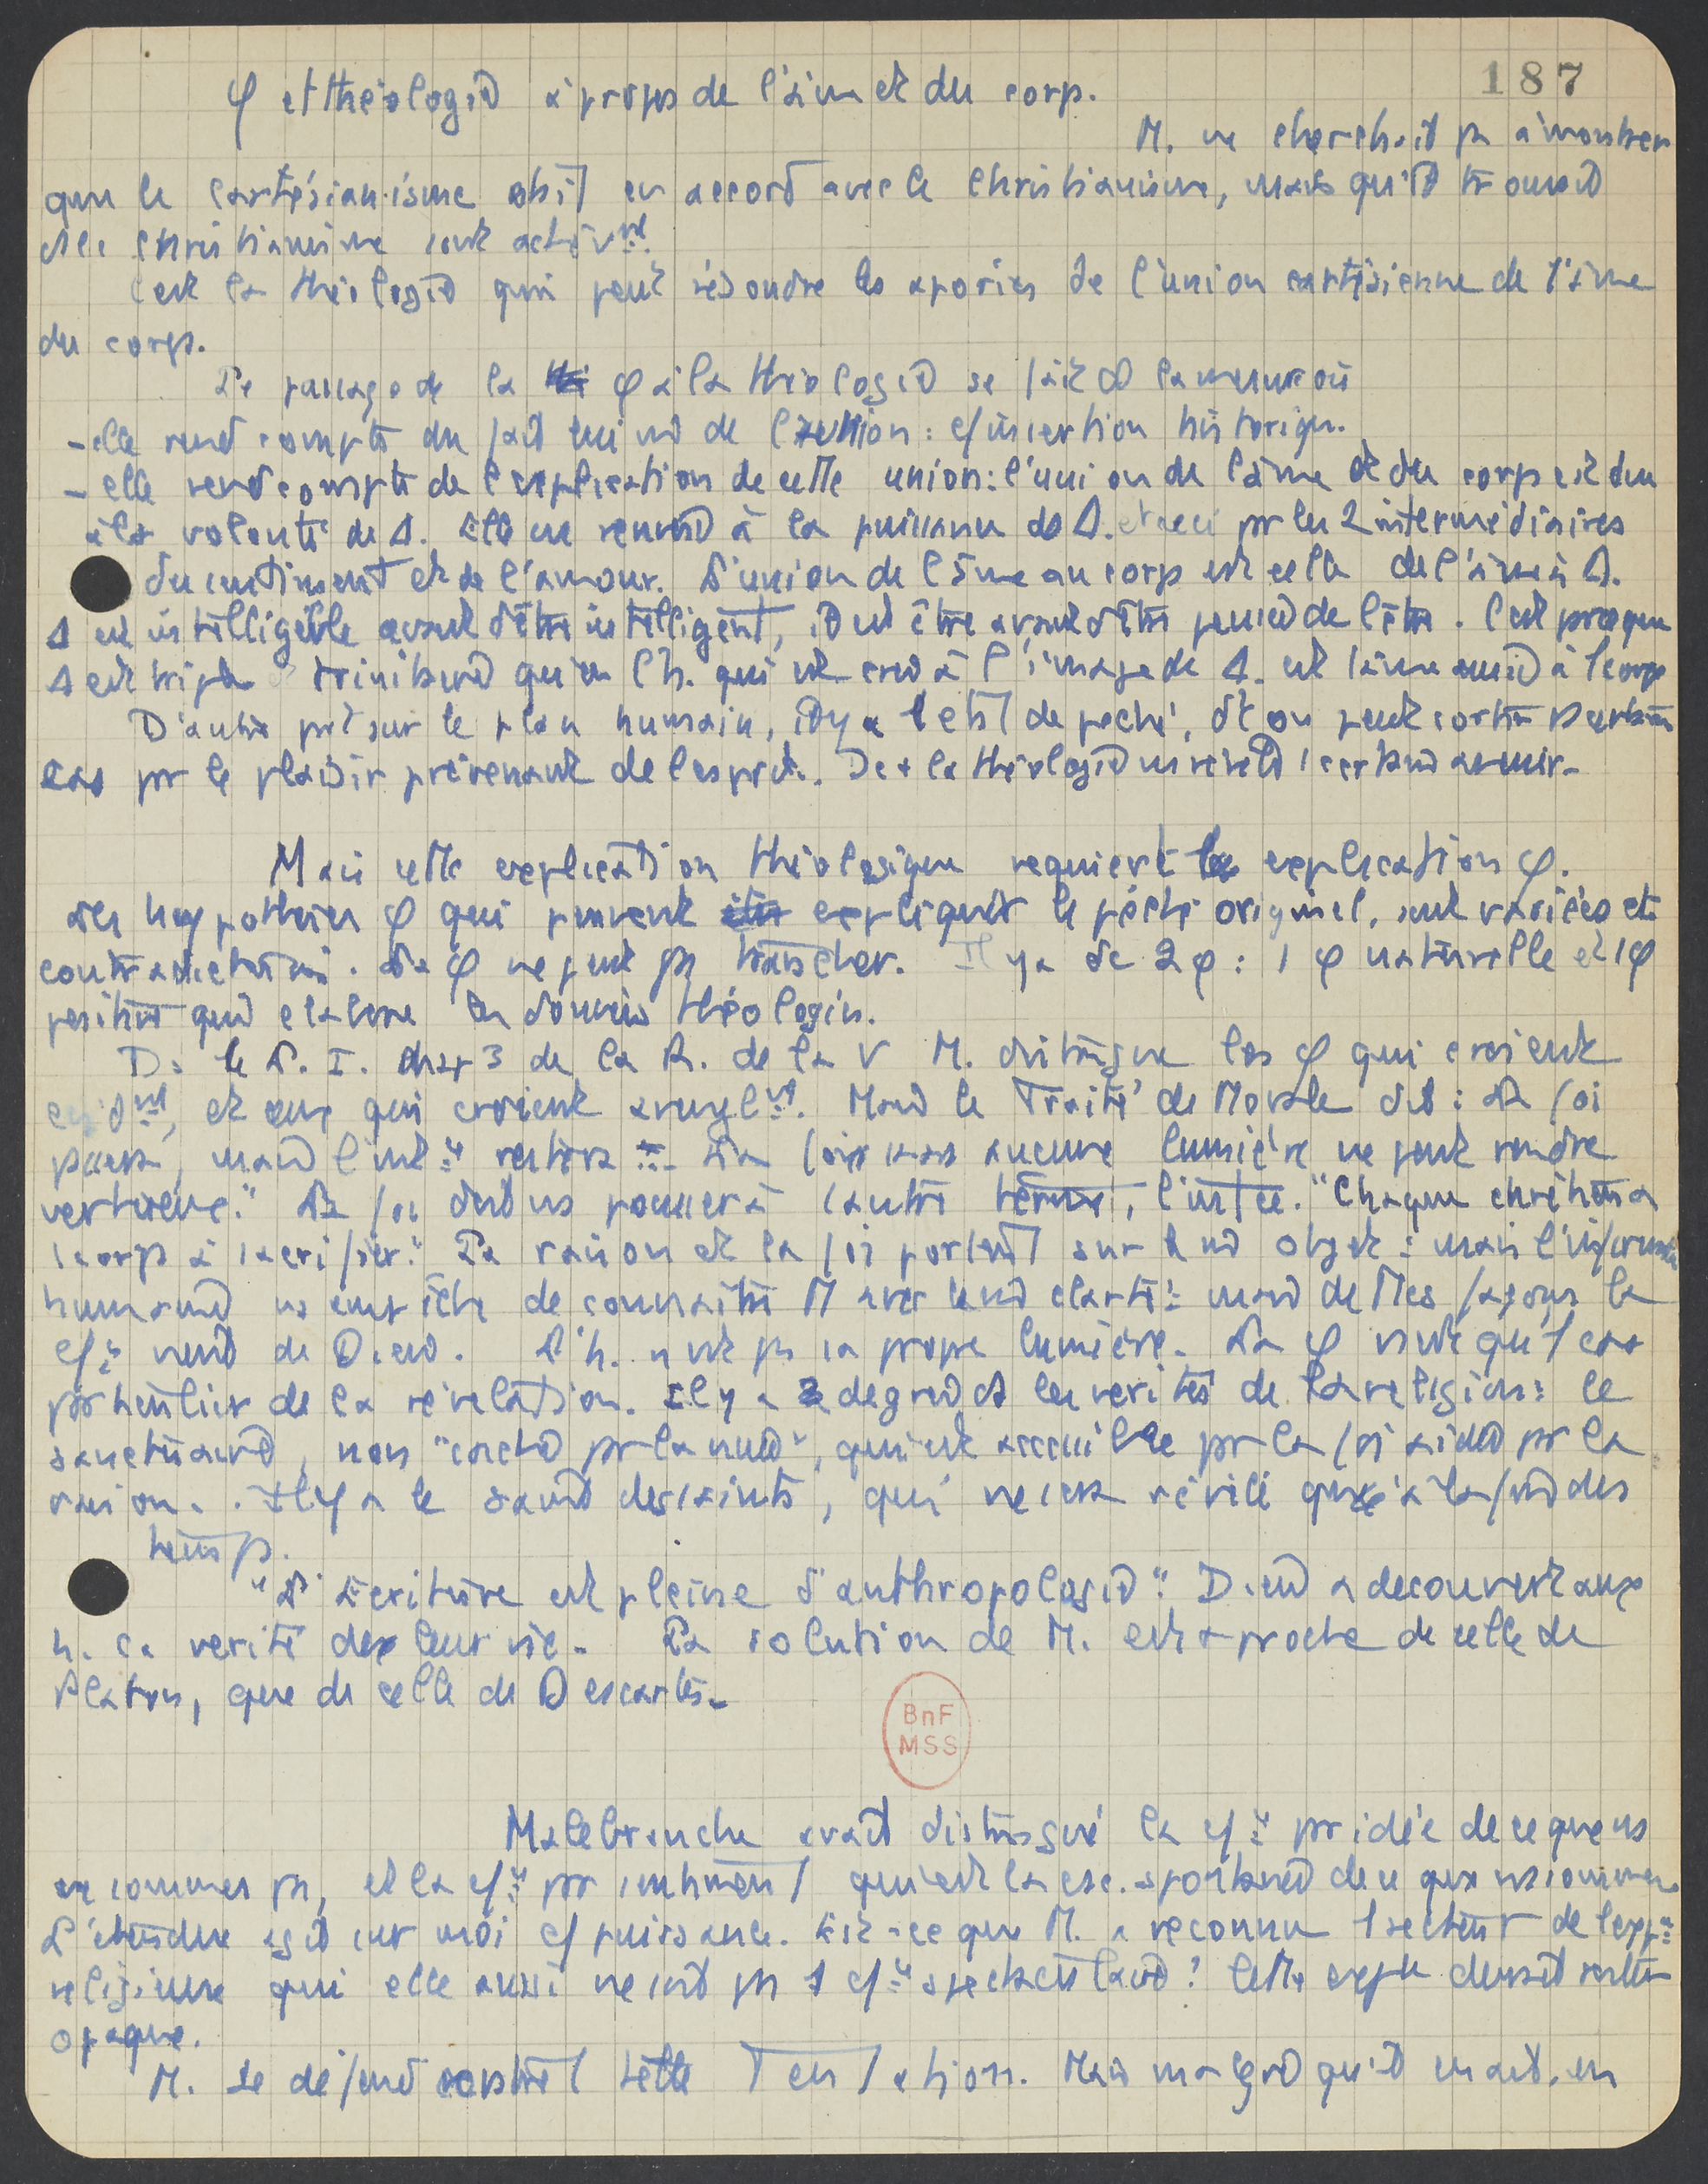 187
φ et théologie à propos de l'âme et du corps.
M. ne cherchait pas à montrer
que le cartésianisme était en accord avec le christianisme, mais qu'il trouvait
christianisme son achèvnt.
C'est la théologie qui peut résoudre les apories de l'union cartésienne de l'âme
du corps.
Le passage de la φ à la théologie se fait ds la mesure où
- elle rend compte du fait de l'union : insertion historique.
- elle rend compte de l'explication de cette union : l'union de l'âme et du corps est due
à la volonté de Δ. Elle ne renvoie à la puissance de Δ. et ceci pr les 2 intermédiaires
du sentiment et de l'amour. L'union de l'âme au corps est celle de l'âme à Δ.
Δ est intelligible avant d'être intelligent, il est être avant d'être pensée de l'être. C'est parce que
Δ est triple trinitaire qu'en l'h. qui est créé à l'image de Δ. est l'âme unie à 1 corps
D'autre part sur le plan humain, il y a l'état de péché, dt on peut sortir ds certains
cas pr le plaisir prévenant de l'esprit. De + la théologie ns révèle 1 certain avenir.
Mais cette explication théologique requiert explication φ.
Les hypothèses φ qui peuvent expliquer le péché originel, sont variées et
contradictoires. La φ ne peut pas trancher. Il y a dc 2 φ : 1 φ naturelle et 1 φ
positive qui élabore les données théologiq.
Ds le L. I. chap 3 de la R. de la V M. distingue les φ qui croient
et ceux qui croient aveuglnt. Mais le Traité de Morale dit : La foi
passera, mais l'int.. restera La foi sans aucune lumière ne peut rendre
vertueux." La foi doit ns pousser à l'autre terme, l'intce. "Chaque chrétien a
1 corps à sacrifier." La raison et la foi portent sur le mê objet : mais l'infirmité
humaine ns empêche de connaître M avec la mê clarté : mais de ttes façons la
vient de Dieu. L'h. n'est pas sa propre lumière. La φ n'est qu'1 cas
particulier de la révélation. Il y a 2 degrés ds les vérités de la religion : le
sanctuaire, non "caché pr la nuée", qui est accessible pr la foi aidée pr la
raison. Il y a le saint des saints, qui ne sera révélé qu'à la fin des
temps.
"L'Ecriture est pleine d'anthropologie" Dieu a découvert aux
h. sa vérité ds leur vie. La solution de M. est + proche de celle de
Platon, que de celle de Descartes.
BnF
MSS
Malebranche avait distingué la pr idée de ce que ns
ne sommes pas, et la pr sentiment qui est la csc. spontanée de ce que ns sommes.
L'étendue agit sur moi puissance. Est-ce que M. a reconnu 1 secteur de l'exp
religieuse qui elle aussi ne soit pas 1 spectaculaire ? Cette devrait rester
opaque.
M. se défend contre cette tentation. Mais malgré qu'il en ait, en